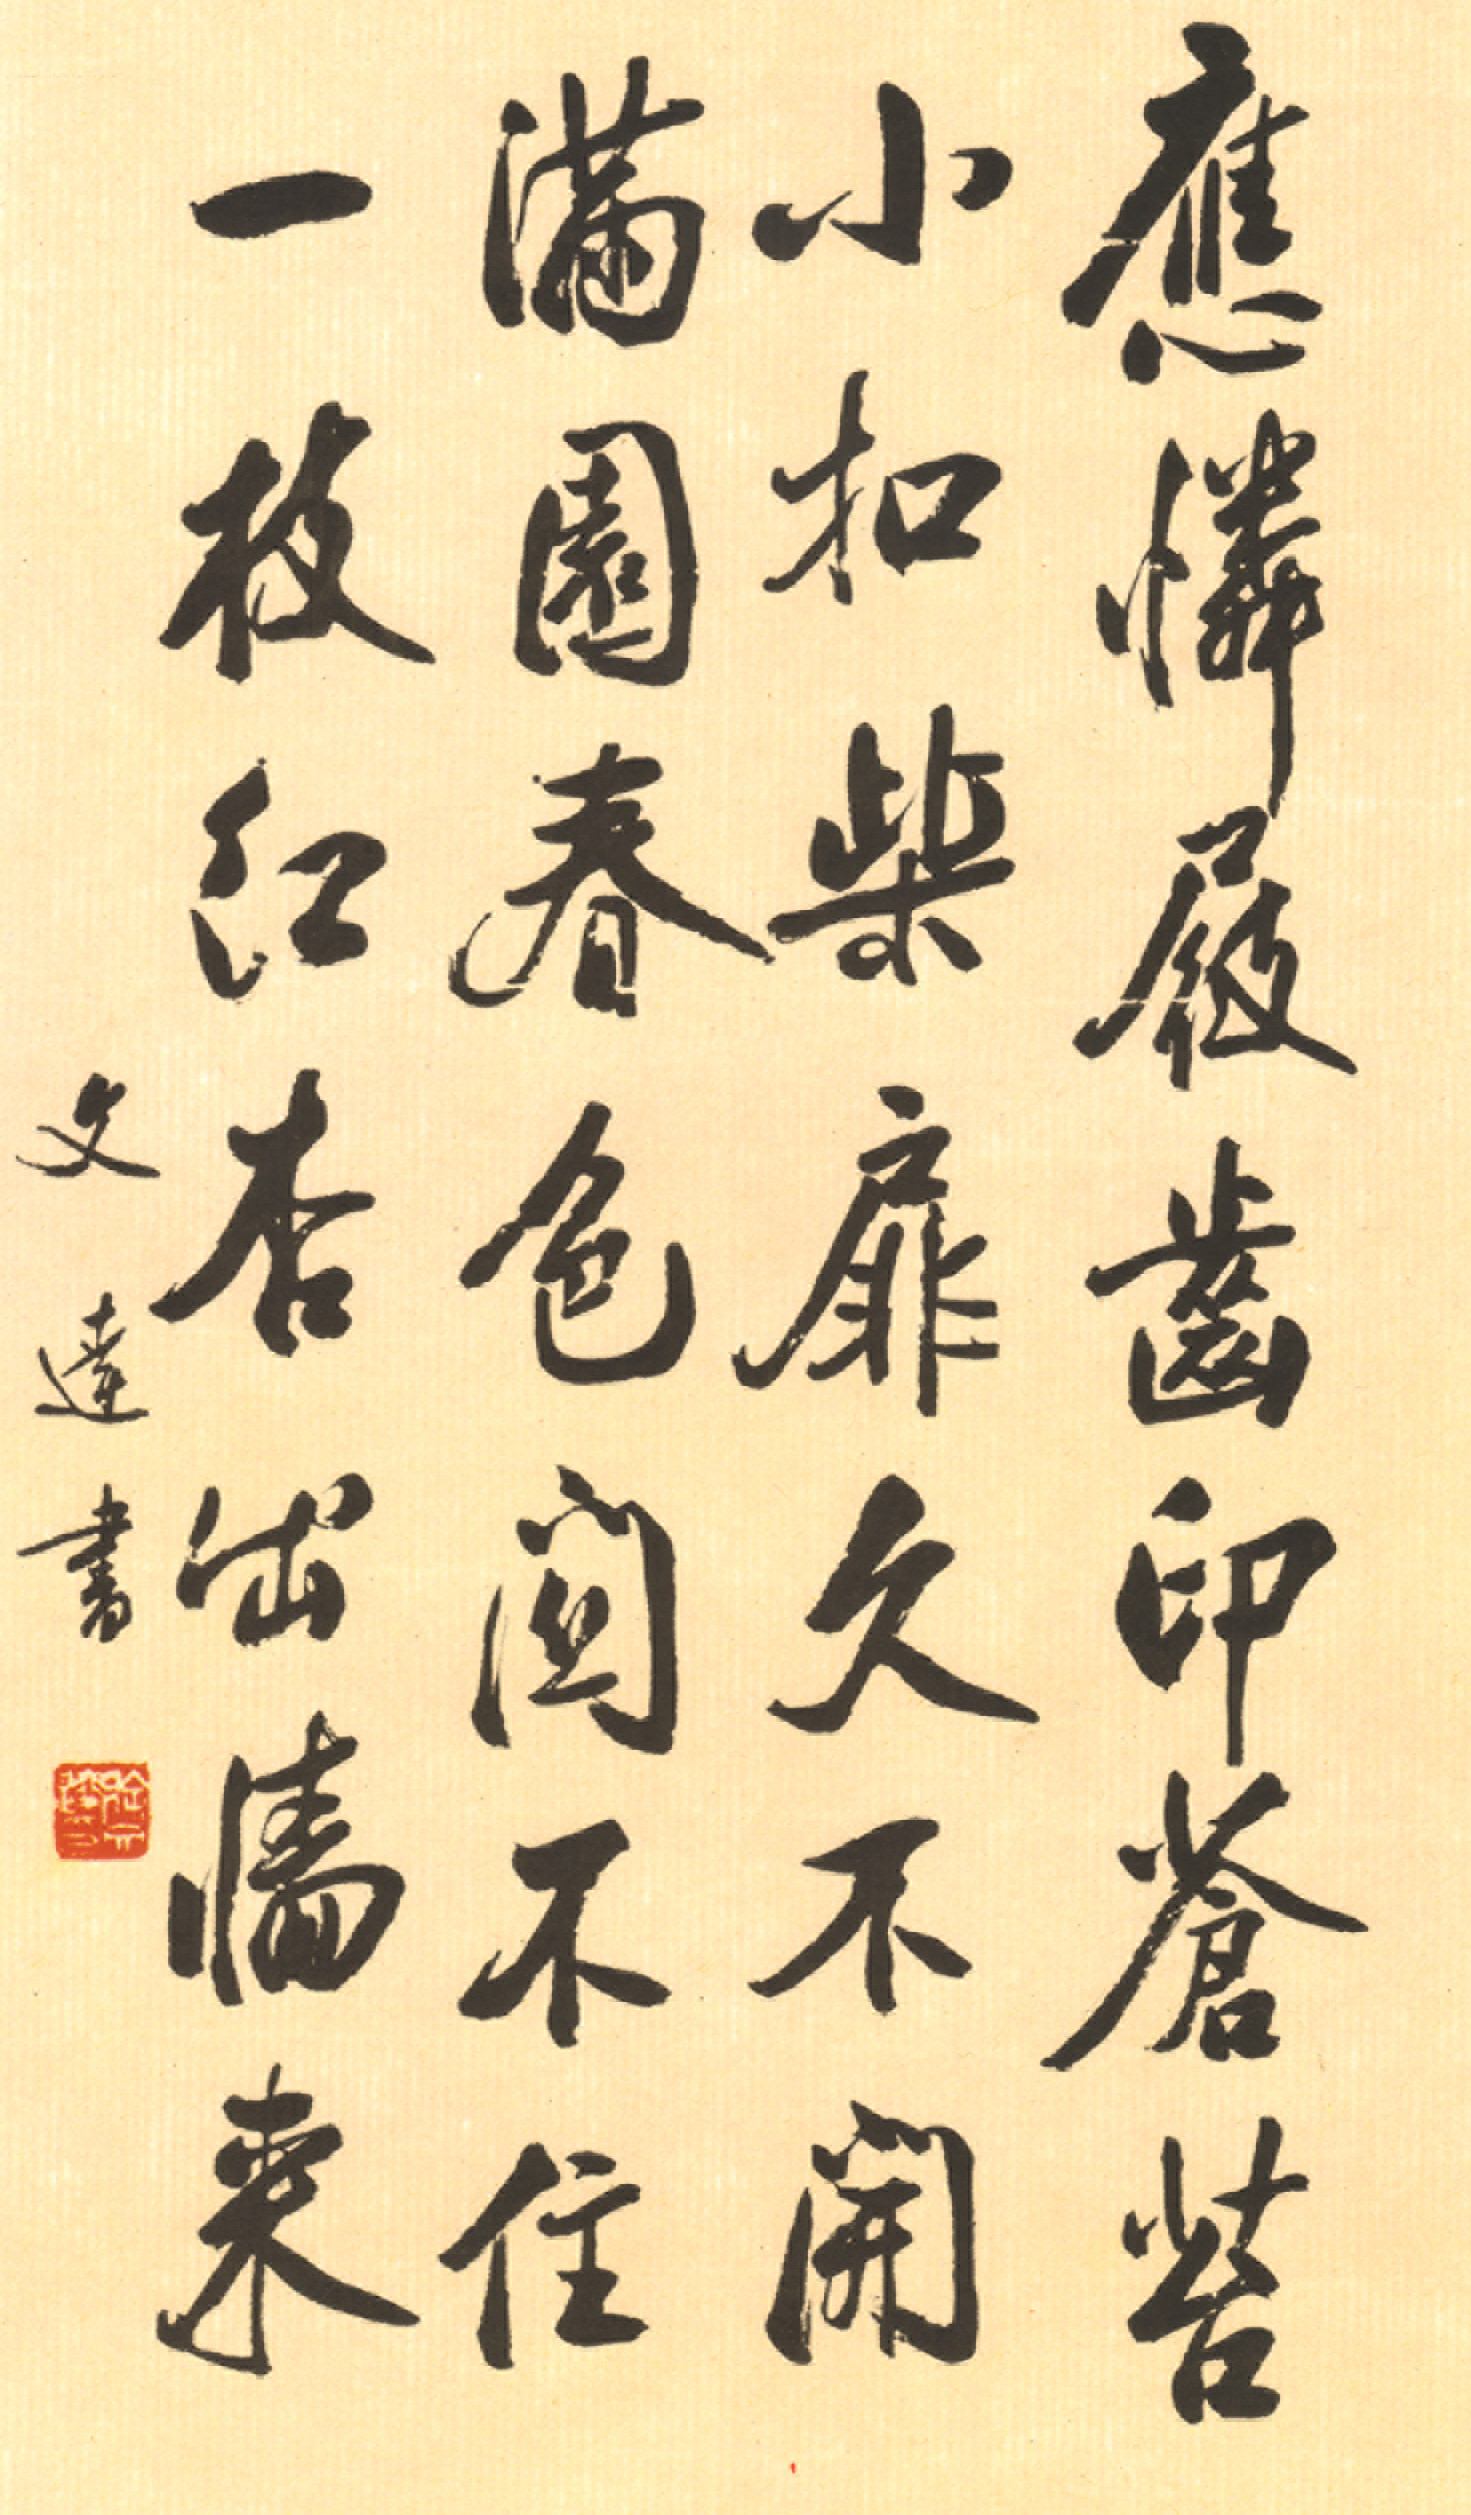 應憐屐齒印蒼苔
小扣柴扉久不開
滿園春色関不住
一枝红杏出墻来
文達書